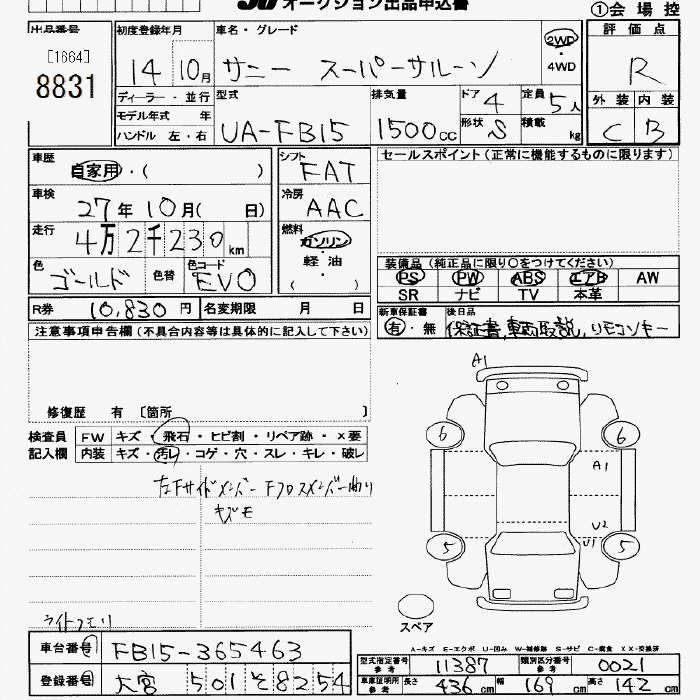 オークション出品申込書
①会場控
出品番号
[1664]
8831
初度登録年月
14 10月
車名・グレード
サニー スーパーサルーン
2WD
・
4WD
評価点
R
外装 内装
C B
ディーラー・並行
モデル年式 年
ハンドル 左・右
型式
UA-FB15
排気量
1500cc
ドア 4
形状 S
定員 5人
積載 kg
車歴
自家用・( )
車検
27年10月( 日)
走行
4万2千230km
色 ゴールド
色替
色コード EVO
シフト
FAT
冷房
AAC
燃料
ガソリン
・
軽・油
・
( )
セールスポイント(正常に機能するものに限ります)
装備品(純正品に限り〇をつけてください)
PS PW ABS エアB AW
SR ナビ TV 本革
R券 10,830円
名変期限 月 日
新車保証書
有・無
後日品
保証書,車両取説,リモコンキー
注意事項申告欄(不具合内容等は具体的に記入して下さい)
修復歴 有 [箇所 ]
検査員
記入欄
FW キズ・飛石・ヒビ割・リペア跡・X要
内装 キズ・汚レ・コゲ・穴・スレ・キレ・破レ
左Fサイドメンバー Fクロスメンバー曲り
キズモ
ライトクモリ
A1
6
6
A1
U2
U1
5
5
スペア
A-キズ E-エクボ U-凹み W-補修跡 S-サビ C-腐食 XX-交換済
車台番号 FB15-365463
登録番号 大宮 501 そ 8254
型式指定番号
参考
11387
類別区分番号
参考
0021
車庫証明用
参考
長さ 436cm 幅 169cm 高さ 142cm